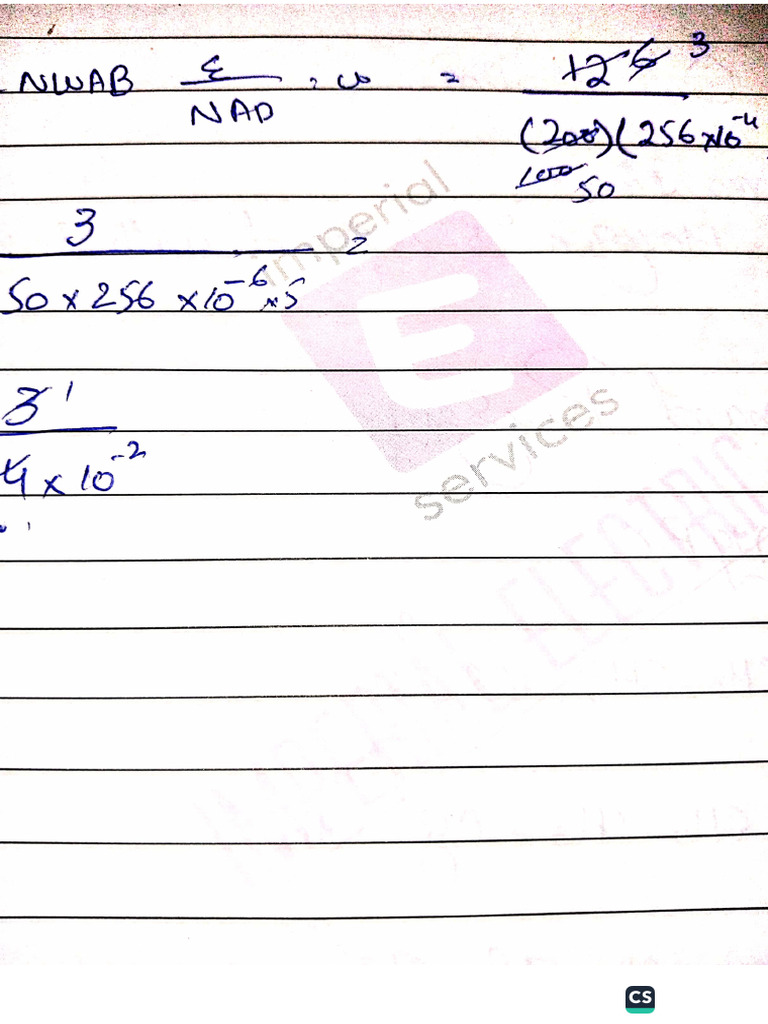 NWAB ε/NAB = ω = 12 6 3
(200)(256×10⁻⁴
100 50
3 =
50 × 256 × 10⁻⁶ × 5
3 1
4 × 10⁻²
imperial
E
services
CS